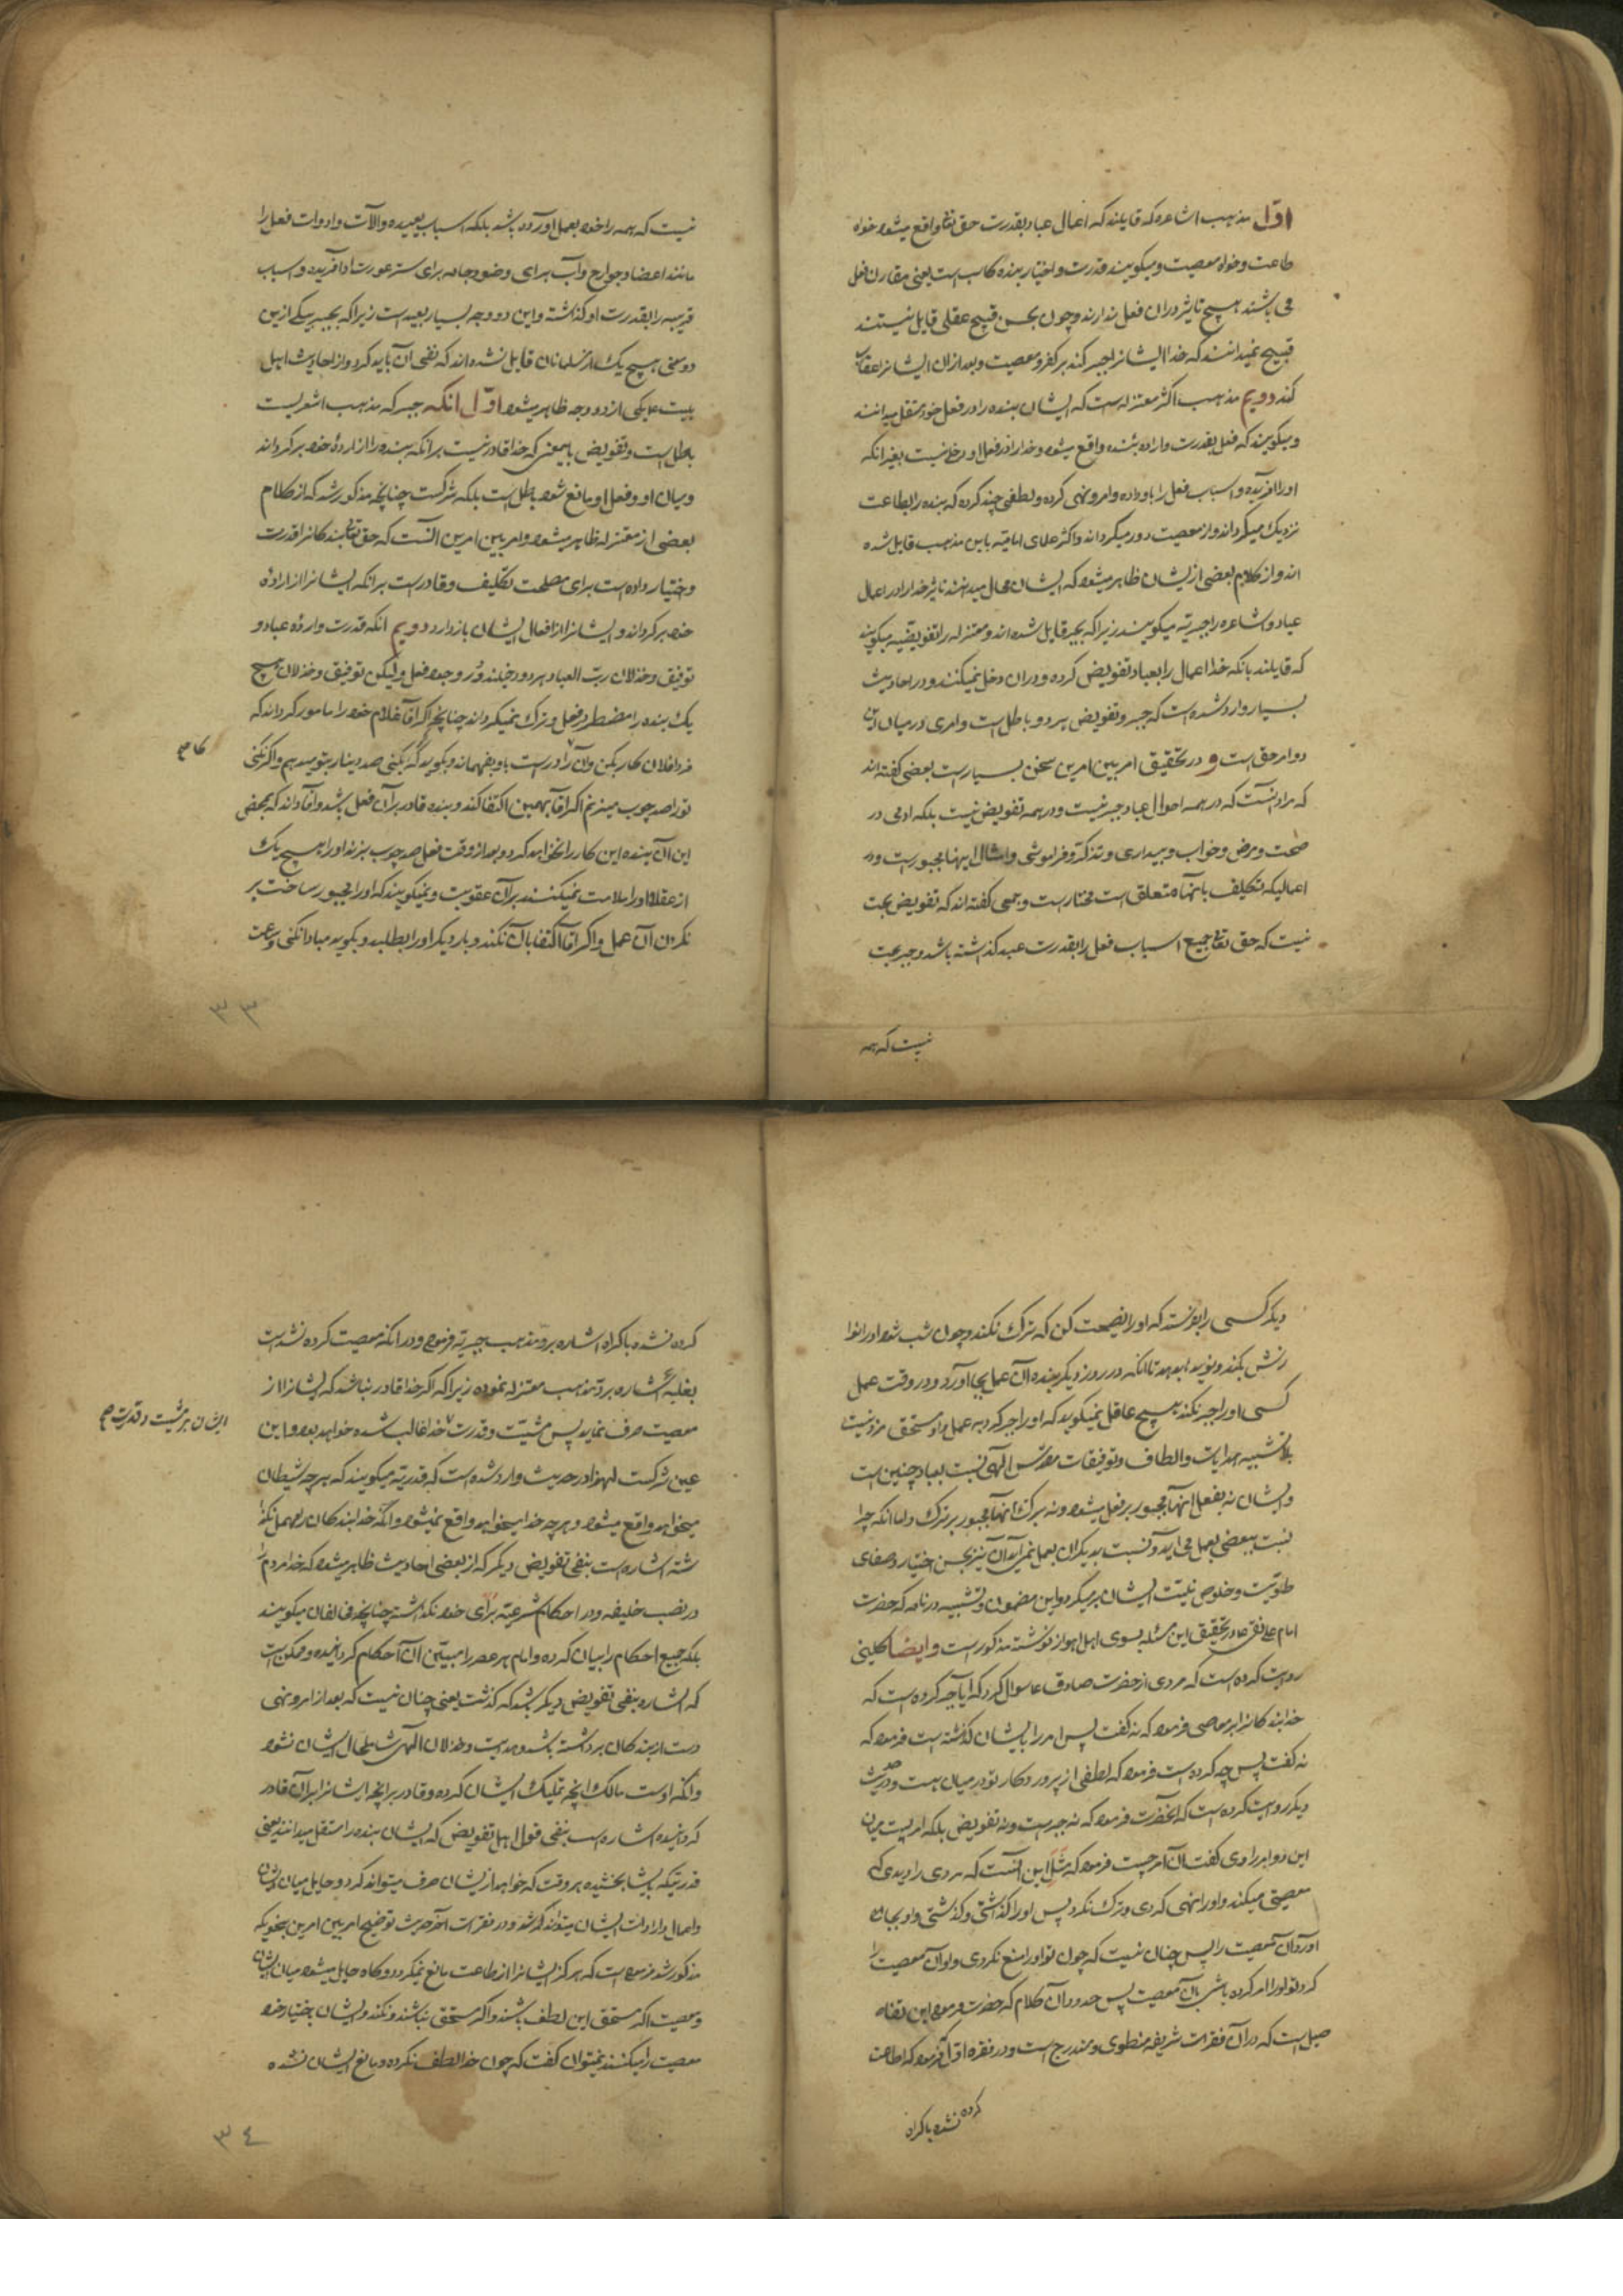 اوّل مذهب اشاعره که قایلند که اعمال عباد بقدرت حق تعا واقع میشود خواه
طاعت و خواه معصیت و میکویند قدرت و اختیار بنده کاسب است یعنی مقارن فعل
می باشند هیچ تاثیر در ان فعل ندارند و چون بحسن و قبیح عقلی قایل نیستند
قبیح نمیدانند که خدا ایشانرا جبر کند بر کفر و معصیت و بعد از ان ایشانرا عقاب
کند دویم مذهب اکثر معتزله است که ایشان بنده را در فعل خود مستقل میدانند
و میکویند که فعل بقدرت و اراده بنده واقع میشود و خدا را در فعل او دخلی نیست بغیر انکه
او را افریده و اسباب فعل را باو داده و امر و نهی کرده و لطفی چند کرده که بنده را بطاعت
نزدیک میکرداند و از معصیت دور میکرداند و اکثر علمای امامیه باین مذهب قایل شده
اند و از کلام بعضی از یشان ظاهر میشود که ایشان محال میدانند تاثیر خدا را در اعمال
عباد و اشاعره را جبریه میکویند زیرا که بجبر قایل شده اند و معتزله را تفویضیه میکویند
که قایلند بانکه خدا اعمال را بعباد تفویض کرده و در ان دخل نمیکنند و در احادیث
بسیار وارد شده است که جبر و تفویض هر دو باطل است و امری در میان این
دو امر حق است و در تحقیق امر بین امرین سخن بسیار است بعضی کفته اند
که مراد انست که در همه احوال عباد جبر نیست و در همه تفویض نیست بلکه ادمی در
صحت و مرض و خواب و بیداری و تذکر و فراموشی و امثال اینها مجبور است و در
اعمالیکه تکلیف بانها متعلق است مختار است و جمعی کفته اند که تفویض بحت
نیست که حق تعا جمیع اسباب فعل را بقدرت عبد کذاشته باشد و جبر بحت
نیست که همه
نیست که همه را خود بعمل اورده باشد بلکه اسباب بعیده و الآت و ادوات فعل را
مانند اعضا و جوارح و آب برای وضو و جامه برای ستر عورت او آفریده و اسباب
قریبه را بقدرت او کذاشته و این دو وجه بسیار بعید است زیرا که بجبر یکی ازین
دو معنی هیچ یک از مسلمانان قایل نشده اند که نفی ان باید کرد و از احادیث اهل
بیت ع یکی از دو وجه ظاهر میشود اوّل انکه جبر که مذهب اشعریست
باطل است و تفویض باینمعنی که خدا قادر نیست بر انکه بنده را از ارادهٔ خود برکرداند
و میان او و فعل او مانع شود باطل است بلکه شرکست چنانچه مذکور شد که از کلام
بعضی از معتزله ظاهر میشود و امر بین امرین انست که حق تعالی بندکانرا قدرت
و اختیار داده است برای مصلحت تکلیف و قادر است بر انکه ایشانرا از ارادهٔ
خود برکرداند و ایشانرا از افعال ایشان باز دارد دویم انکه قدرت و ارادهٔ عباد و
توفیق و خذلان ربّ العباد هر دو دخیلند در وجود فعل و لیکن توفیق و خذلان هیچ
یک بنده را مضطر در فعل و ترک نمیکرداند چنانچه اکر آقا غلام خود را مامور کرداند که
فردا فلان کار بکن و آن را درست باو بفهماند و بکوید که بکنی صد دینار بتو میدهم و اکر نکنی
کار ص
تو را صد چوب میزنم اکر اقا بهمین اکتفا کند و بنده قادر بر آن فعل باشد و آقا داند که بمحض
این آن بنده این کار را نخواهد کرد و بعد از وقت فعل صد چوب بزند او را هیچ یک
از عقلا او را ملامت نمیکنند بر آن عقوبت و نمیکویند که او را مجبور ساخت بر
نکردن آن عمل و اکر اقا اکتفا بان نکند و بار دیکر او را بطلبد و بکوید مبادا نکنی و
٣٣
دیکر کسی را بفرستد که او را نصیحت کن که ترک نکند و چون شب شود او را نوا
زش بکند و نوید بدهد تا انکه در روز دیکر بنده آن عمل بجا آورد و در وقت عمل
کسی او را جبر نکند هیچ عاقل نمیکوید که او را جبر کرد به عمل و او مستحق مزد نیست
بلا تشبیه هدایات و الطاف و توفیقات مقدس الهی نسبت بعباد چنین است
و ایشان نه بفعل انها مجبور بر فعل میشود و نه بترک انها مجبور بر ترک و اما انکه چرا
نسبت ببعضی بعمل می اید و نسبت بدیکران بعمل نمی آید ان نیز بحسن اختیار و صفای
طویّت و خلوص نیّت ایشان بر میکردد و این مضمون و تشبیه در نامه که حضرت
امام علی نقی ع در تحقیق این مسئله بسوی اهل اهواز نوشته مذکور است و ایضا کلینی
روایت کرده است که مردی از حضرت صادق ع سوال کرد که آیا جبر کرده است که
خدا بندکانرا بر معاصی فرمود که نه کفت پس امر را بایشان کذاشته است فرمود که
نه کفت پس چه کرده است فرمود که لطفی از پروردکار تو در میان هست و در حدیث
دیکر روایت کرده است که انحضرت فرمود که نه جبر است و نه تفویض بلکه امریست میان
این دو امر راوی کفت آن امر چیست فرمود که مثل این انست که مردی را دیدی که
معصیتی میکند و او را نهی کردی و ترک نکرد پس او را کذاشتی و کذشتی و او بجا
اورد آن معصیت را پس چنان نیست که چون تو او را منع نکردی و او آن معصیت را
کرد تو او را امر کرده باشی بان معصیت پس آن کلام که حضرت فرمود این
است که در آن فقرات شریفه منطوی و مندرج است و در فقره اوّل فرمود که اطاعت
کرده نشده باکراه
کرده نشده باکراه اشاره برد مذهب جبریه فرمود و در انکه معصیت کرده نشده است
بغلبه اشاره برد مذهب معتزله نموده زیرا که اکر خدا قادر نباشد که ایشانرا از
معصیت صرف نماید پس مشیّت و قدرت خدا غالب شده خواهد بود و این
ایشان بر مشیت و قدرت ص
عین شرکست لهذا در حدیث وارد شده است که قدریّه میکویند که هر چه شیطان
میخواهد واقع میشود و هر چه خدا میخواهد واقع نمیشود و انکه خدا بندکان را مهمل نکذا
شته اشاره است بنفی تفویض دیکر که از بعضی احادیث ظاهر میشود که خدا مردم را
در نصب خلیفه و در احکام شرعیّه برای خود نکذاشته چنانچه مخالفان میکویند
بلکه جمیع احکام را بیان کرده و امام هر عصر را مبین ان احکام کردانیده و ممکن است
که اشاره بنفی تفویض دیکر باشد که کذشت یعنی چنان نیست که بعد از امر و نهی
دست از بندکان برداشته باشد و هدایت و خذلان الهی شامل حال ایشان نشود
و انکه اوست مالک انچه تملیک ایشان کرده و قادر بر انچه ایشانرا بر ان قادر
کردانیده اشاره است بنفی قول اهل تفویض که ایشان بنده را مستقل میدانند یعنی
قدرتیکه بایشان بخشیده هر وقت که خواهد از یشان صرف میتواند کرد و حایل میان ایشان
و اعمال و ارادات ایشان میتواند شد و در فقرات آخر حدیث توضیح امر بین امرین بنحویکه
مذکور شد فرموده است که هرکز ایشانرا از طاعت مانع نمیکردد و کاه حایل میشود میان ایشان
و معصیت اکر مستحق این لطف باشند و اکر مستحق نباشند نکند و ایشان باختیار خود
معصیت را میکنند نمیتوان کفت که چون خدا لطف نکرده و مانع ایشان نشده
٣٤